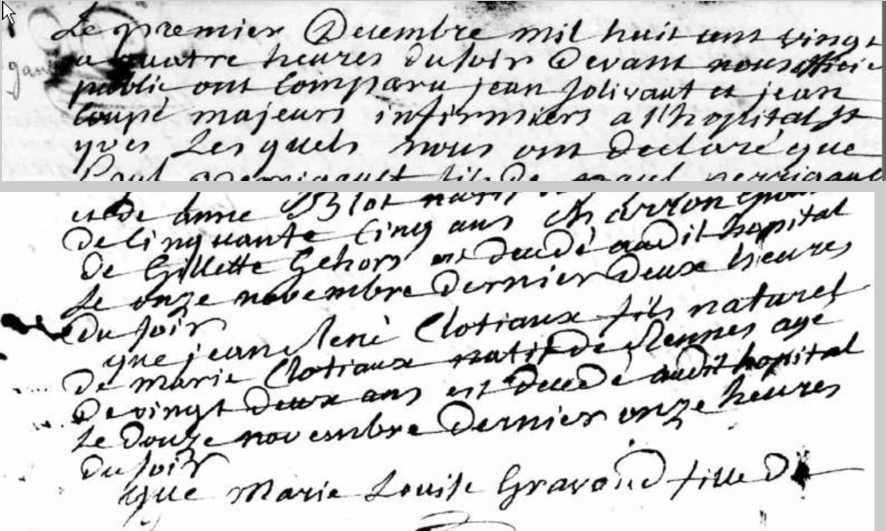 Le premier Decembre mil huit cent vingt
a quatre heures du soir Devant nous officie
public ont Comparu jean Jolivaut et jean
Coupé majeurs infirmiers a l'hopital St
yves Les quels nous ont declaré que
Paul fils de
et de anne Blot natif
De Cinquante Cinq ans Charron
De Gillette Gehors est decedé audit hopital
Le onze novembre Dernier Deux heures
Du soir
que jean René Clotiaux fils naturel
De marie Clotiaux natif de Rennes agé
De vingt Deux ans est decedé audit hopital
Le Douze novembre Dernier onze heures
Du soir
que Marie Louise Gravoud fille De